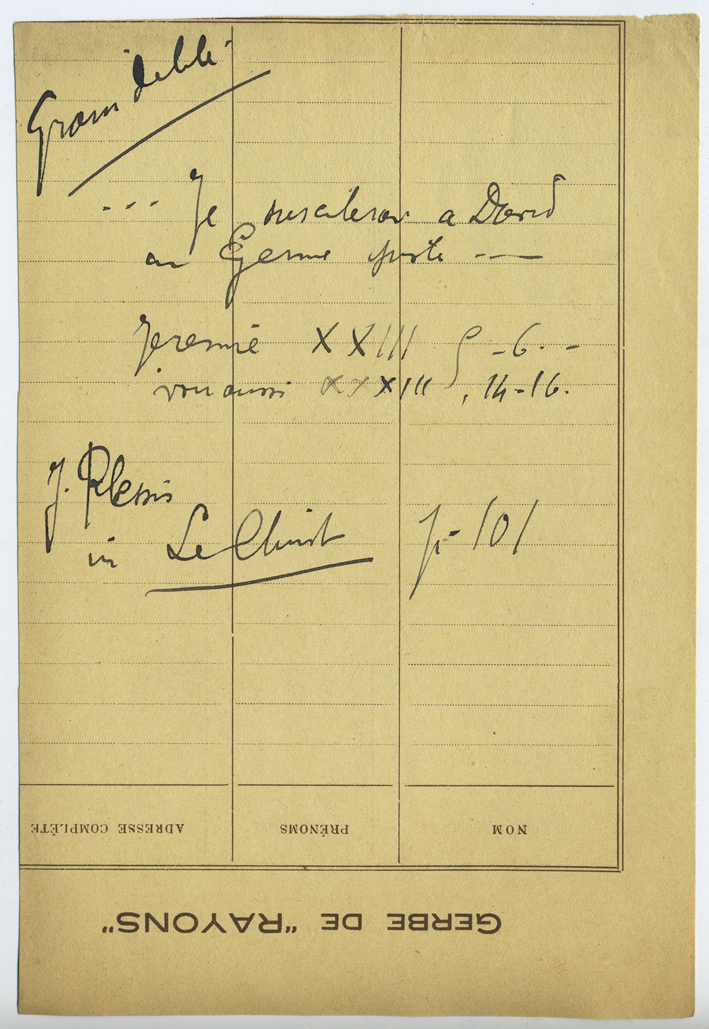 Grain de blé
... Je susciterai à David
un Germe juste —
Jérémie XXIII 5-6. -
voir aussi XXXIII, 14-16.
J. Plessis
in Le Christ p. 101
ADRESSE COMPLÈTE PRÉNOMS NOM
GERBE DE "RAYONS"